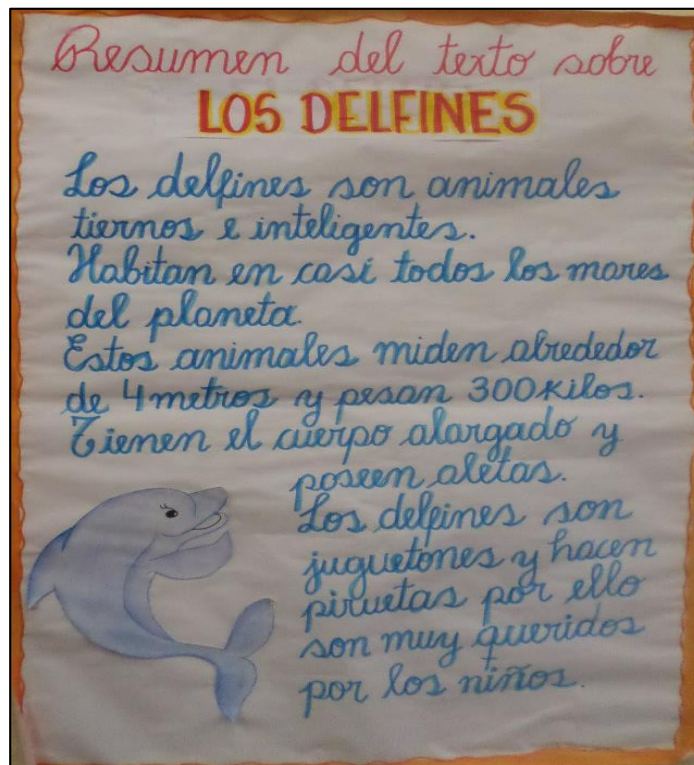 Resumen del texto sobre
LOS DELFINES
Los delfines son animales
tiernos e inteligentes.
Habitan en casi todos los mares
del planeta.
Estos animales miden alrededor
de 4 metros y pesan 300 kilos.
Tienen el cuerpo alargado y
poseen aletas.
Los delfines son
juguetones y hacen
piruetas por ello
son muy queridos
por los niños.